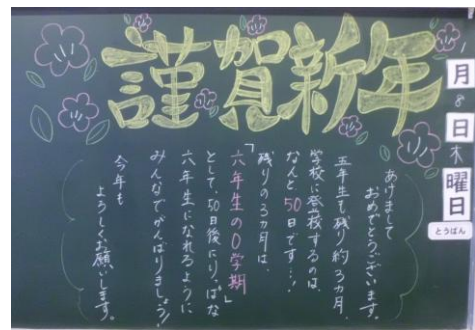 謹賀新年
あけまして
おめでとうございます。
五年生も残り約3カ月。
学校に登校するのは、
なんと50日です…!
残りの3カ月は、
「六年生の0学期」
として、50日後にりっぱな
六年生になれるように
みんなでがんばりましょう!
今年も
よろしくお願いします。
月
8
日
木
曜日
とうばん